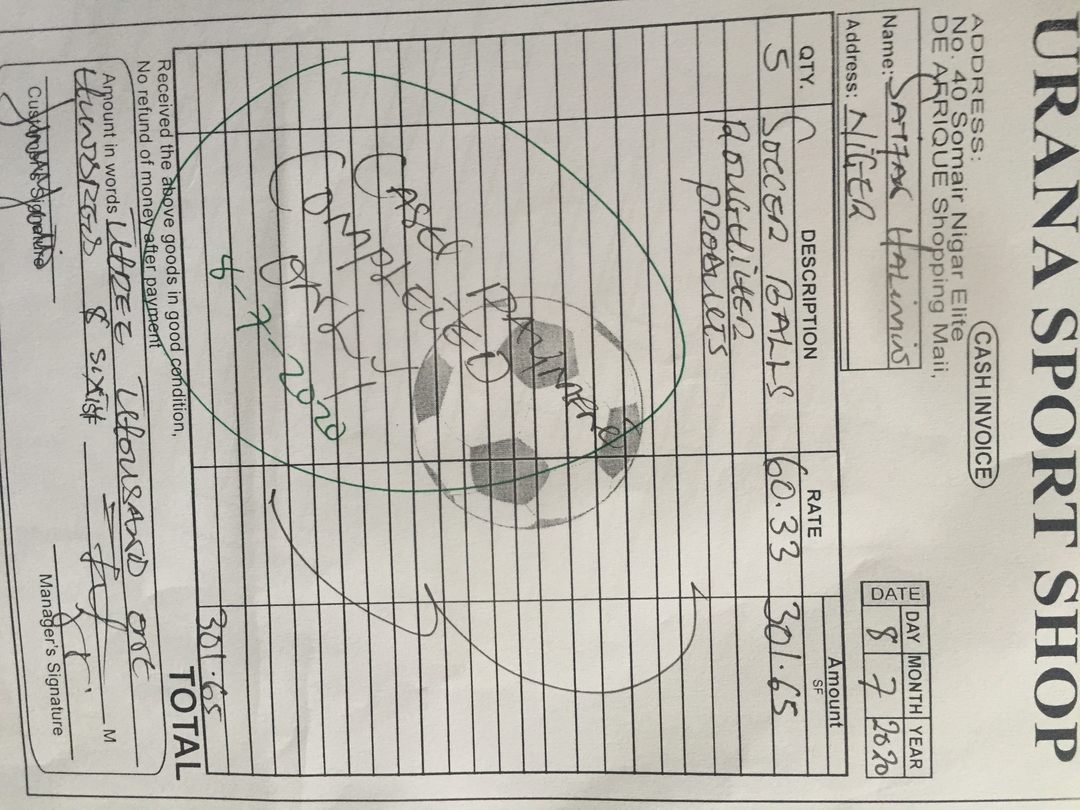 URANA SPORT SHOP
CASH INVOICE
ADDRESS:
No. 40 Somair Nigar Elite
DE AFRIQUE Shopping Maii,
DATE DAY MONTH YEAR
8 7 2020
Name:
Address: NIGER
QTY. DESCRIPTION RATE Amount
SF
5 SOCCER BALLS 60.33 301.65
PRODUCTS
CASH PAYMENT
COMPLETED
ONLY
8-7-2020
301.65
TOTAL
Received the above goods in good condition,
No refund of money after payment
Amount in words THREE THOUSAND ONE
& SIXIST
M
Customer's Signature
Manager's Signature